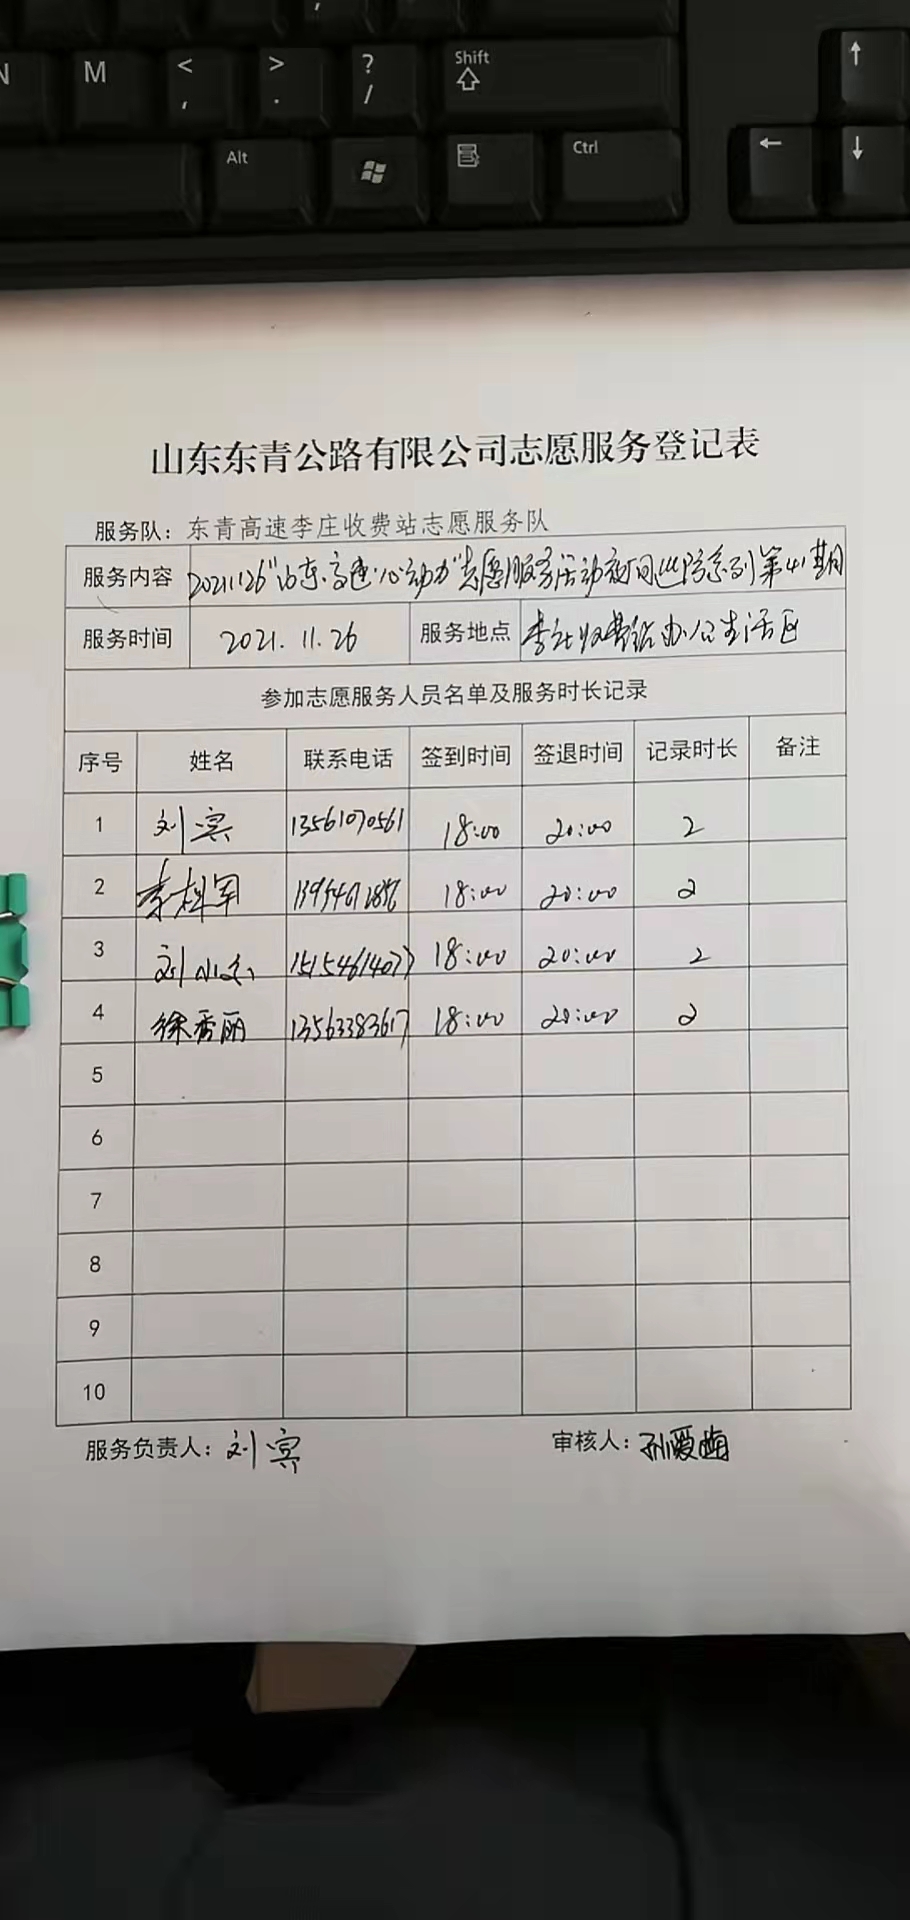 N M < , > . ? / Shift ↑
Alt Ctrl ← ↓
山东东青公路有限公司志愿服务登记表
服务队：东青高速李庄收费站志愿服务队
服务内容 20211126"山东高速·心动力"志愿服务活动夜间巡防系列第41期
服务时间 2021.11.26 服务地点 李庄收费站办公生活区
参加志愿服务人员名单及服务时长记录
序号 姓名 联系电话 签到时间 签退时间 记录时长 备注
1 刘宾 13561070561 18:00 20:00 2
2 18:00 20:00 2
3 刘 15154614077 18:00 20:00 2
4 徐秀丽 13563383617 18:00 20:00 2
5
6
7
8
9
10
服务负责人：刘宾 审核人：孙爱